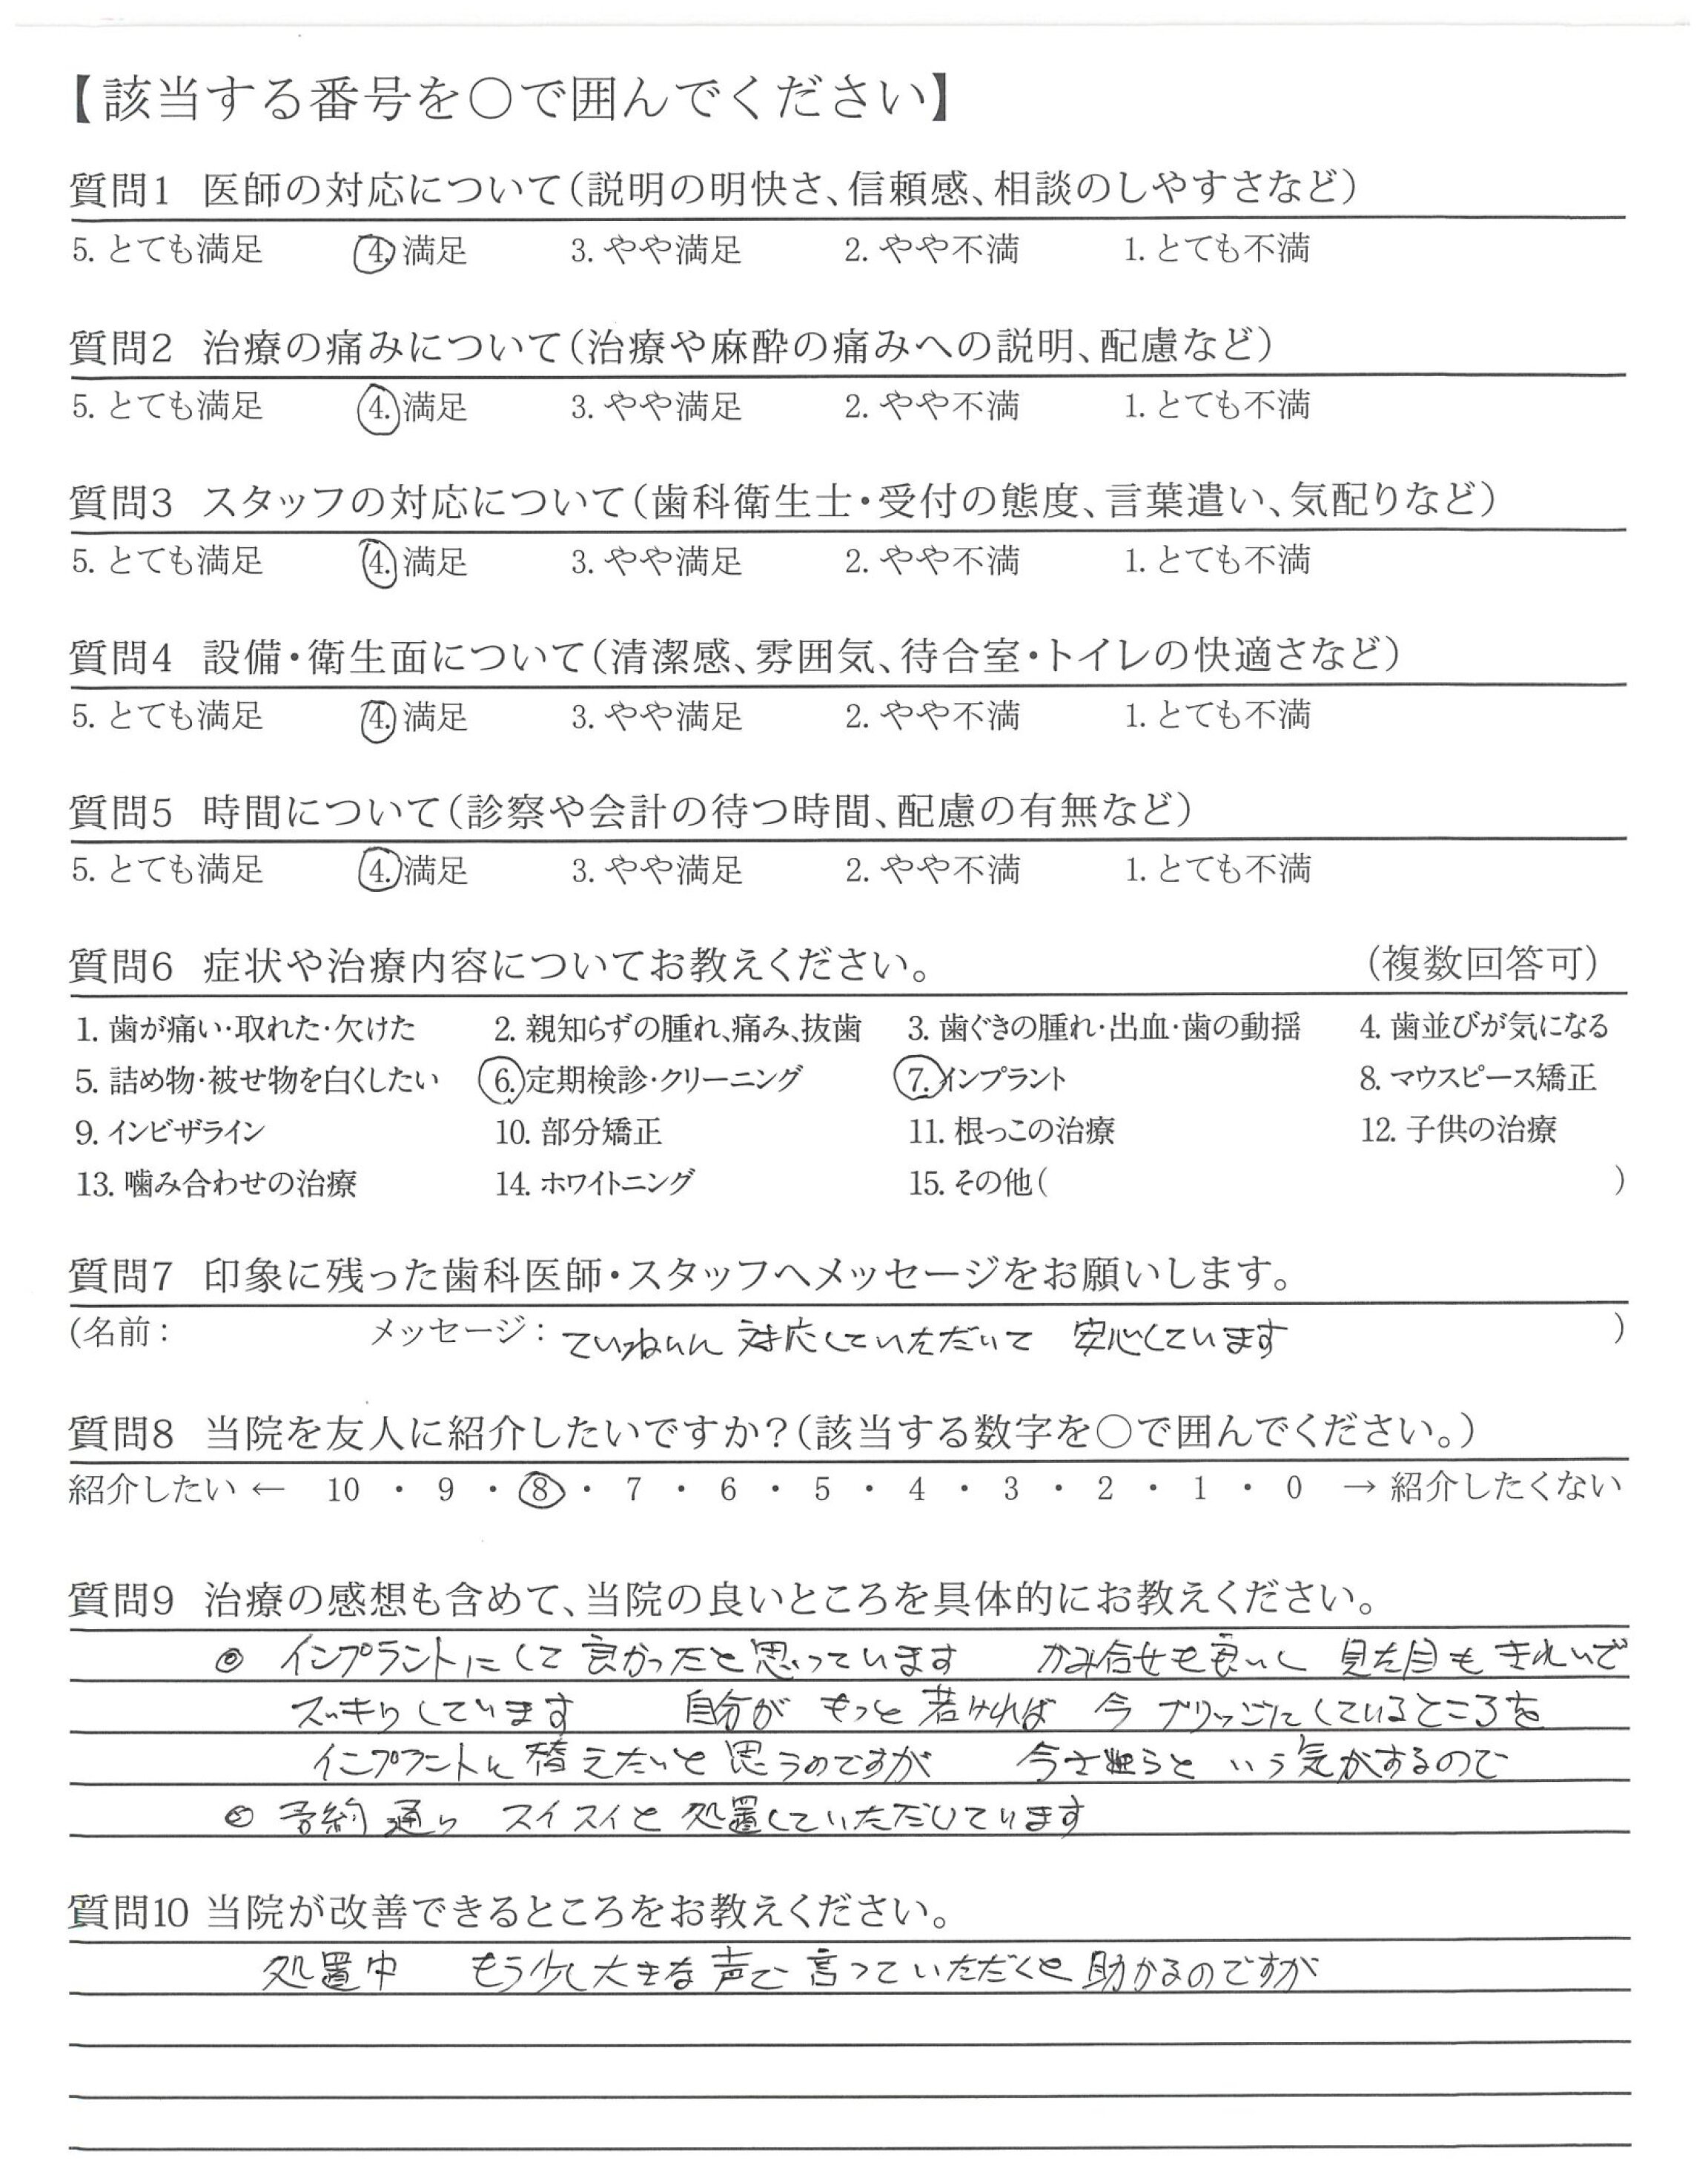 【該当する番号を○で囲んでください】
質問1 医師の対応について(説明の明快さ、信頼感、相談のしやすさなど)
5. とても満足 4. 満足 3. やや満足 2. やや不満 1. とても不満
質問2 治療の痛みについて(治療や麻酔の痛みへの説明、配慮など)
5. とても満足 4. 満足 3. やや満足 2. やや不満 1. とても不満
質問3 スタッフの対応について(歯科衛生士・受付の態度、言葉遣い、気配りなど)
5. とても満足 4. 満足 3. やや満足 2. やや不満 1. とても不満
質問4 設備・衛生面について(清潔感、雰囲気、待合室・トイレの快適さなど)
5. とても満足 4. 満足 3. やや満足 2. やや不満 1. とても不満
質問5 時間について(診察や会計の待つ時間、配慮の有無など)
5. とても満足 4. 満足 3. やや満足 2. やや不満 1. とても不満
質問6 症状や治療内容についてお教えください。 (複数回答可)
1. 歯が痛い・取れた・欠けた 2. 親知らずの腫れ、痛み、抜歯 3. 歯ぐきの腫れ・出血・歯の動揺 4. 歯並びが気になる
5. 詰め物・被せ物を白くしたい 6. 定期検診・クリーニング 7. インプラント 8. マウスピース矯正
9. インビザライン 10. 部分矯正 11. 根っこの治療 12. 子供の治療
13. 噛み合わせの治療 14. ホワイトニング 15. その他( )
質問7 印象に残った歯科医師・スタッフへメッセージをお願いします。
(名前: メッセージ: ていねいに 対応していただいて 安心しています )
質問8 当院を友人に紹介したいですか?(該当する数字を○で囲んでください。)
紹介したい ← 10 ・ 9 ・ 8 ・ 7 ・ 6 ・ 5 ・ 4 ・ 3 ・ 2 ・ 1 ・ 0 → 紹介したくない
質問9 治療の感想も含めて、当院の良いところを具体的にお教えください。
◎ インプラントにして 良かったと思っています かみ合せも良いし 見た目も きれいで
スッキリしています 自分が もっと 若ければ 今 ブリッジにしているところを
インプラントに 替えたいと 思うのですが 今さらと いう気がするので
◎ 予約通り スイスイと 処置していただいています
質問10 当院が改善できるところをお教えください。
処置中 もう少し大きな声で 言っていただくと 助かるのですが